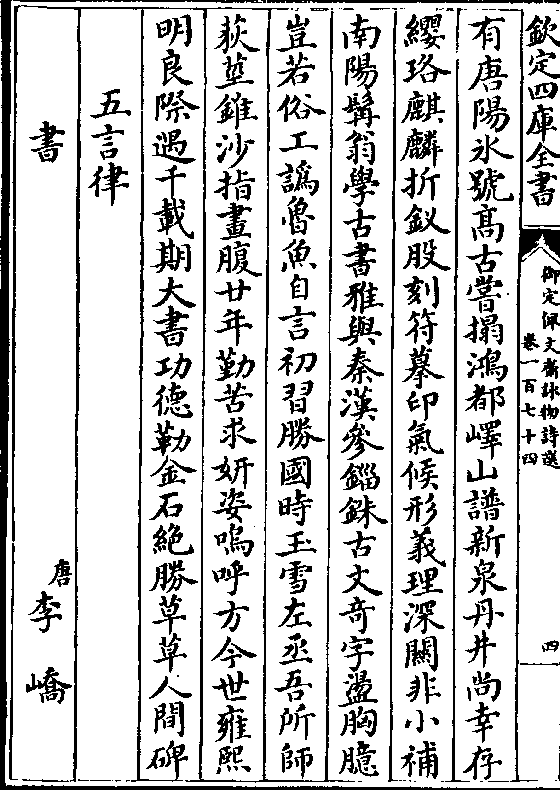 欽定四庫全書
御定佩文齋詠物詩選
卷一百七十四
四
有唐陽氷號髙古嘗搨鴻都嶧山譜新泉丹井尚幸存
纓珞麒麟折釵股刻符摹印氣候形義理深關非小補
南陽髯翁學古書雅與秦漢參錙銖古文竒字盪胸臆
豈若俗工譌魯魚自言初習勝國時玉雪左丞吾所師
荻莖錐沙指畫腹廿年勤苦求妍姿嗚呼方今世雍熙
明良際遇千載期大書功德勒金石絶勝草草人間碑
五言律
書 唐李嶠